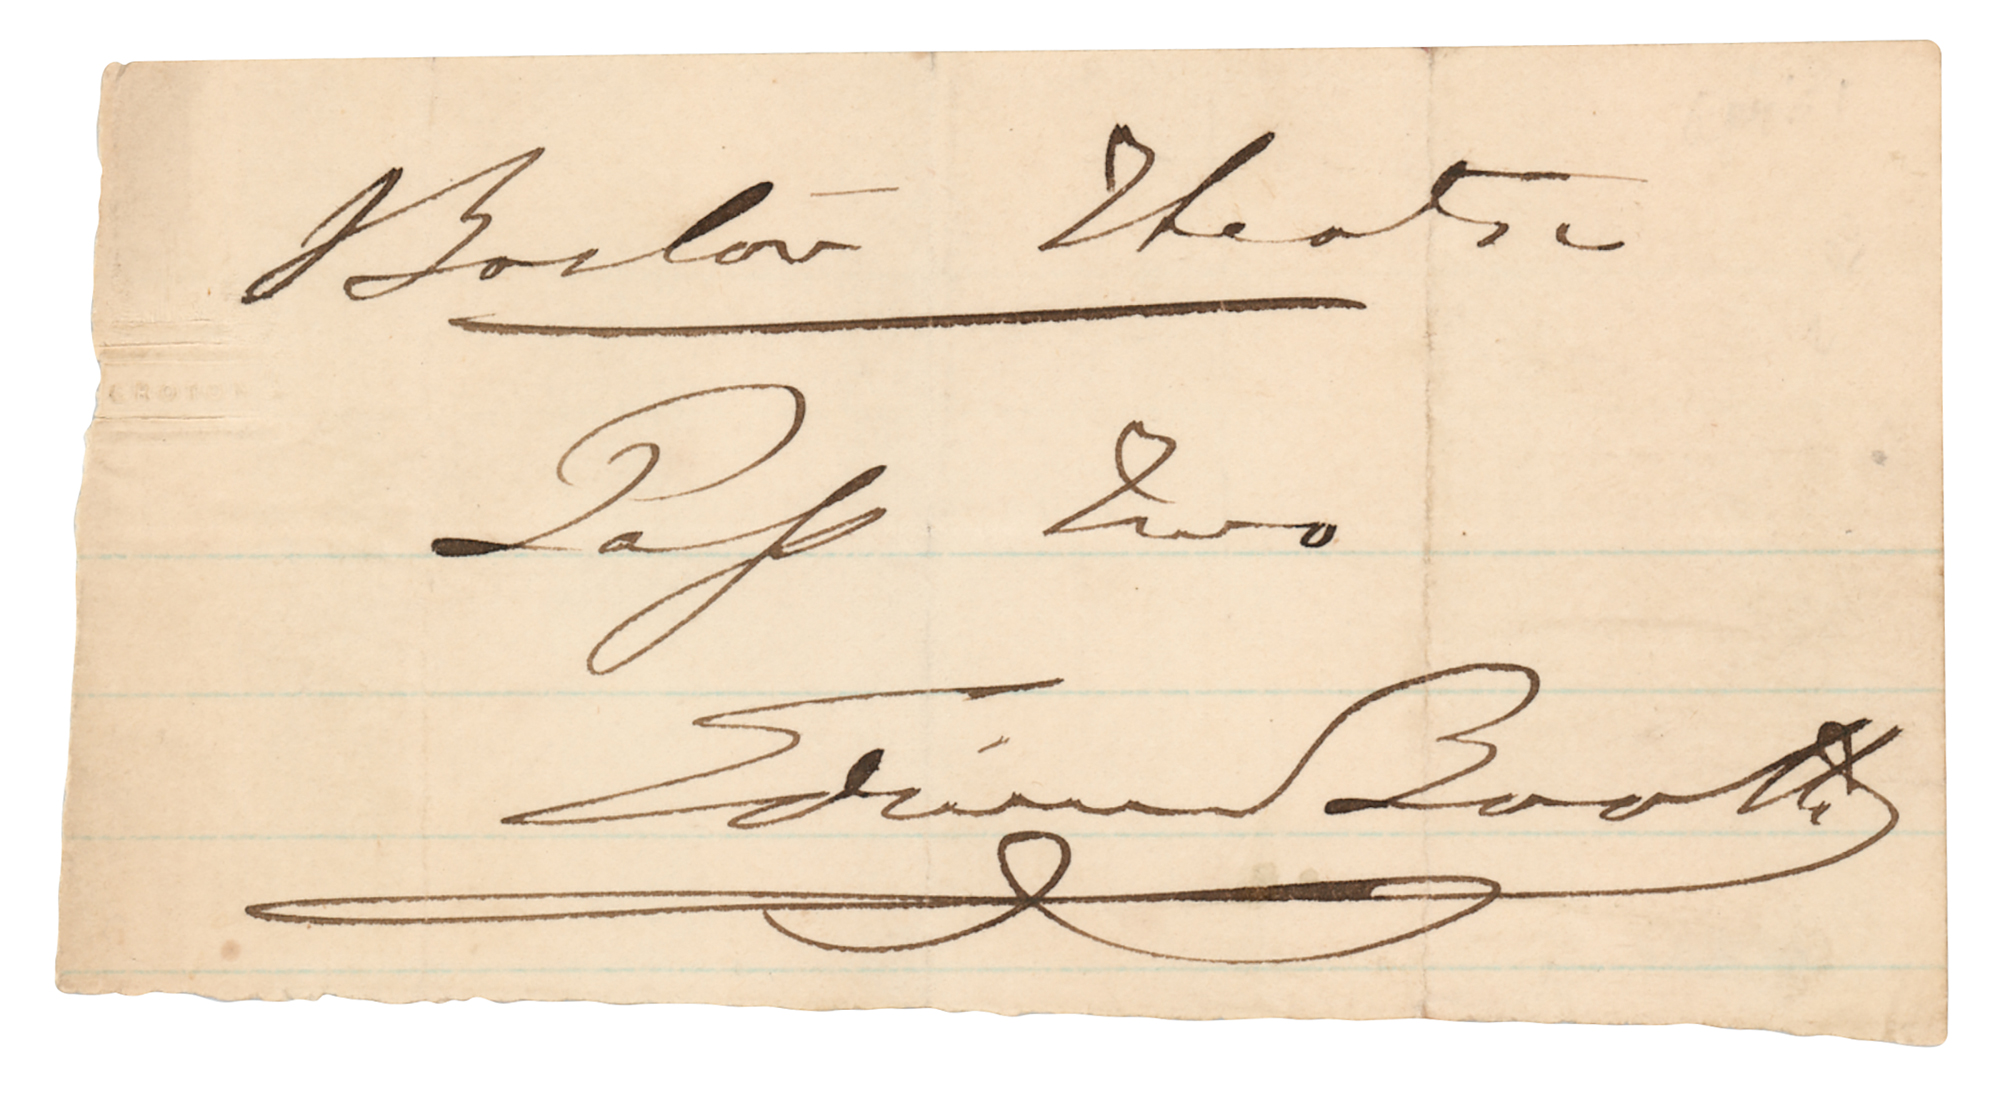 Boston Theatre
Pass Two
Edwin Booth